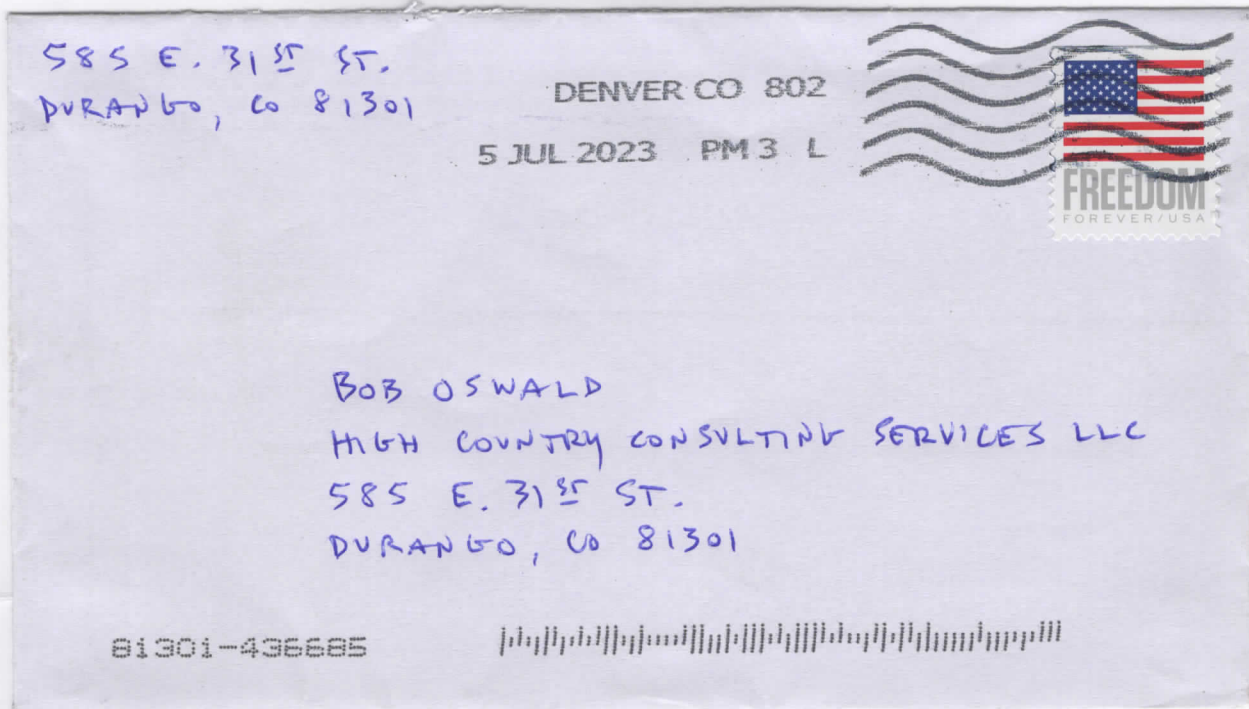 585 E. 31ST ST.
DURANGO, CO 81301
DENVER CO 802
5 JUL 2023 PM 3 L
FREEDOM
FOREVER/USA
BOB OSWALD
HIGH COUNTRY CONSULTING SERVICES LLC
585 E. 31ST ST.
DURANGO, CO 81301
81301-436685